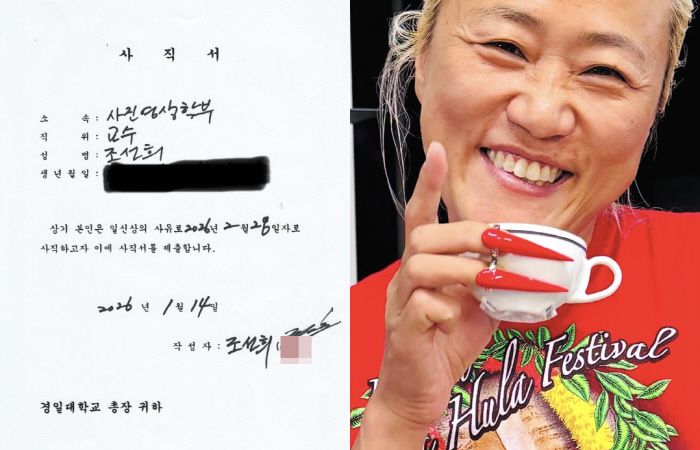 사 직 서
소 속 : 사진영상학부
직 위 : 교수
성 명 : 조선희
생년월일 :
상기 본인은 일신상의 사유로 2026년 2월 28일자로
사직하고자 이에 사직서를 제출합니다.
2026 년 1 월 14일
작성자 : 조선희
경일대학교 총장 귀하
Hula Festival